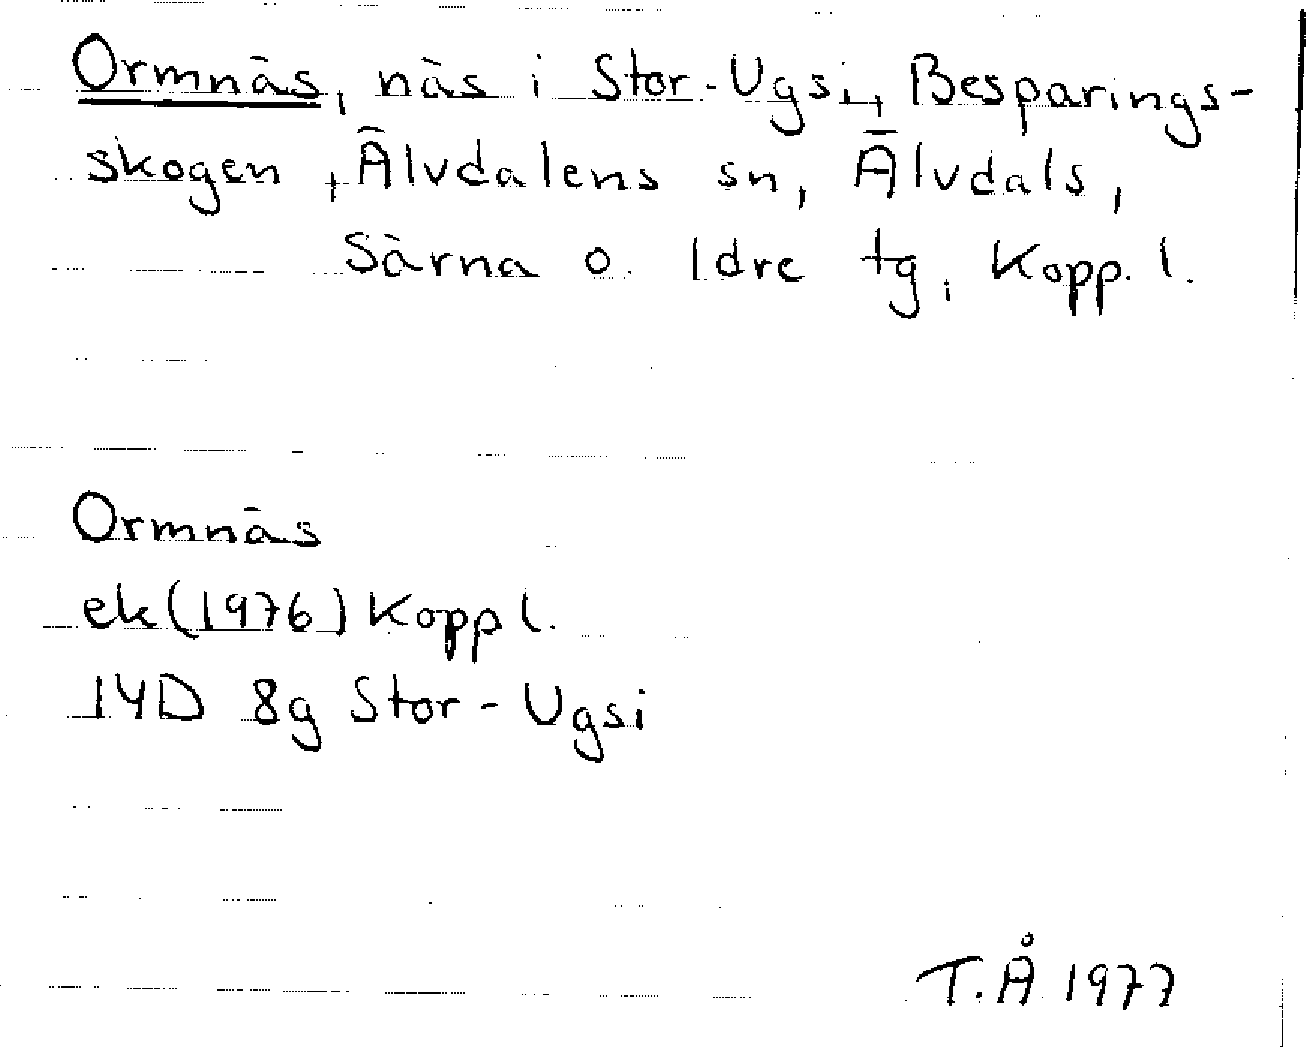 Ormnäs, näs i Stor-Ugsi, Besparings-
skogen, Älvdalens sn, Älvdals,
Särna o. Idre tg, Kopp. l.
Ormnäs
ek (1976) Kopp l.
14D 8g Stor-Ugsi
T.Å 1977